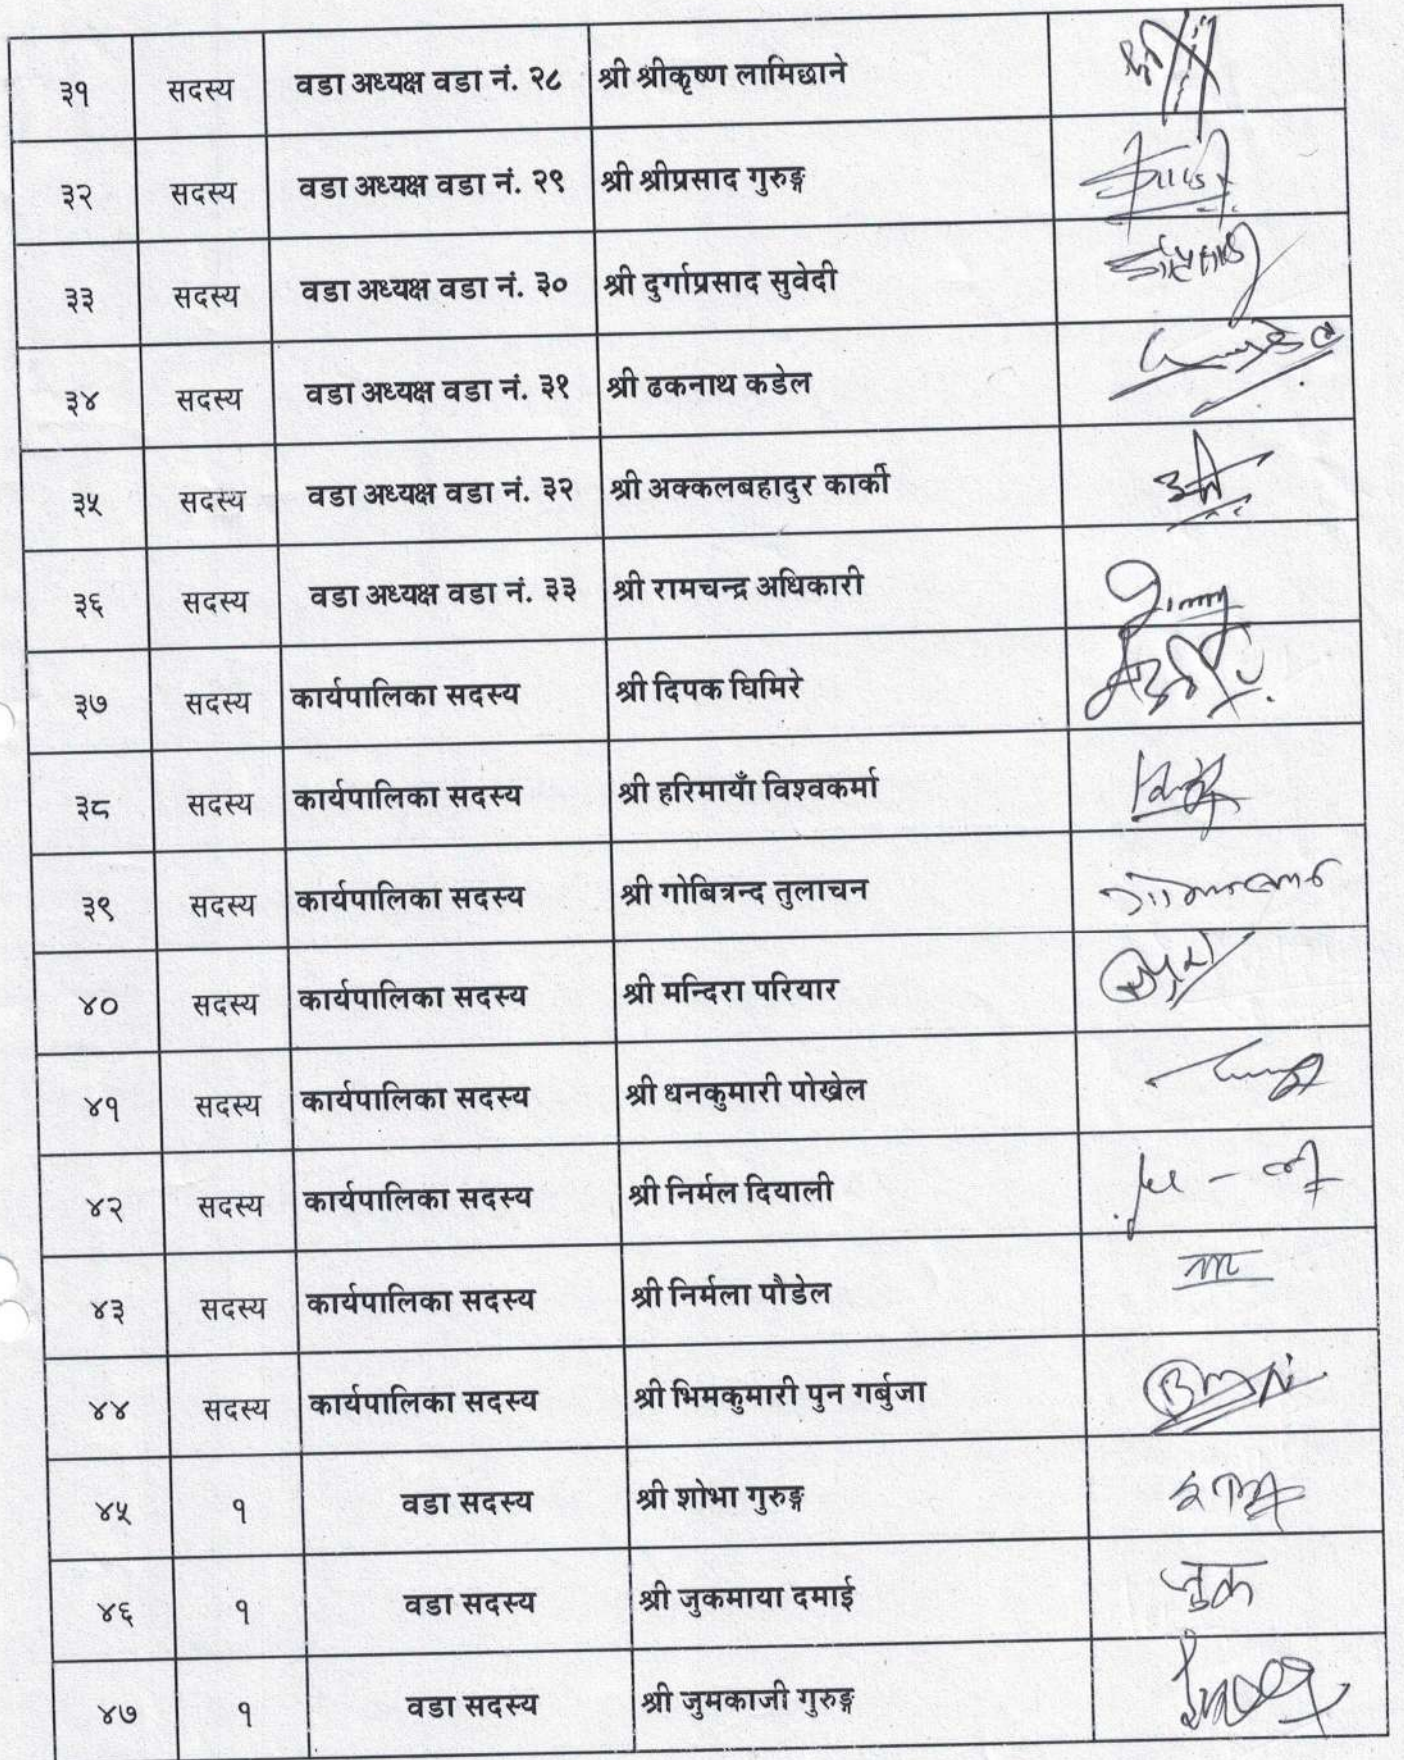 ३१ सदस्य वडा अध्यक्ष वडा नं. २८ श्री श्रीकृष्ण लामिछाने
३२ सदस्य वडा अध्यक्ष वडा नं. २९ श्री श्रीप्रसाद गुरुङ्ग
३३ सदस्य वडा अध्यक्ष वडा नं. ३० श्री दुर्गाप्रसाद सुवेदी
३४ सदस्य वडा अध्यक्ष वडा नं. ३१ श्री ढकनाथ कडेल
३५ सदस्य वडा अध्यक्ष वडा नं. ३२ श्री अक्कलबहादुर कार्की
३६ सदस्य वडा अध्यक्ष वडा नं. ३३ श्री रामचन्द्र अधिकारी
३७ सदस्य कार्यपालिका सदस्य श्री दिपक घिमिरे
३८ सदस्य कार्यपालिका सदस्य श्री हरिमायाँ विश्वकर्मा
३९ सदस्य कार्यपालिका सदस्य श्री गोबित्रन्द तुलाचन
४० सदस्य कार्यपालिका सदस्य श्री मन्दिरा परियार
४१ सदस्य कार्यपालिका सदस्य श्री धनकुमारी पोख्रेल
४२ सदस्य कार्यपालिका सदस्य श्री निर्मल दियाली
४३ सदस्य कार्यपालिका सदस्य श्री निर्मला पौडेल
४४ सदस्य कार्यपालिका सदस्य श्री भिमकुमारी पुन गर्बुजा
४५ १ वडा सदस्य श्री शोभा गुरुङ्ग
४६ १ वडा सदस्य श्री जुकमाया दमाई जुक
४७ १ वडा सदस्य श्री जुमकाजी गुरुङ्ग